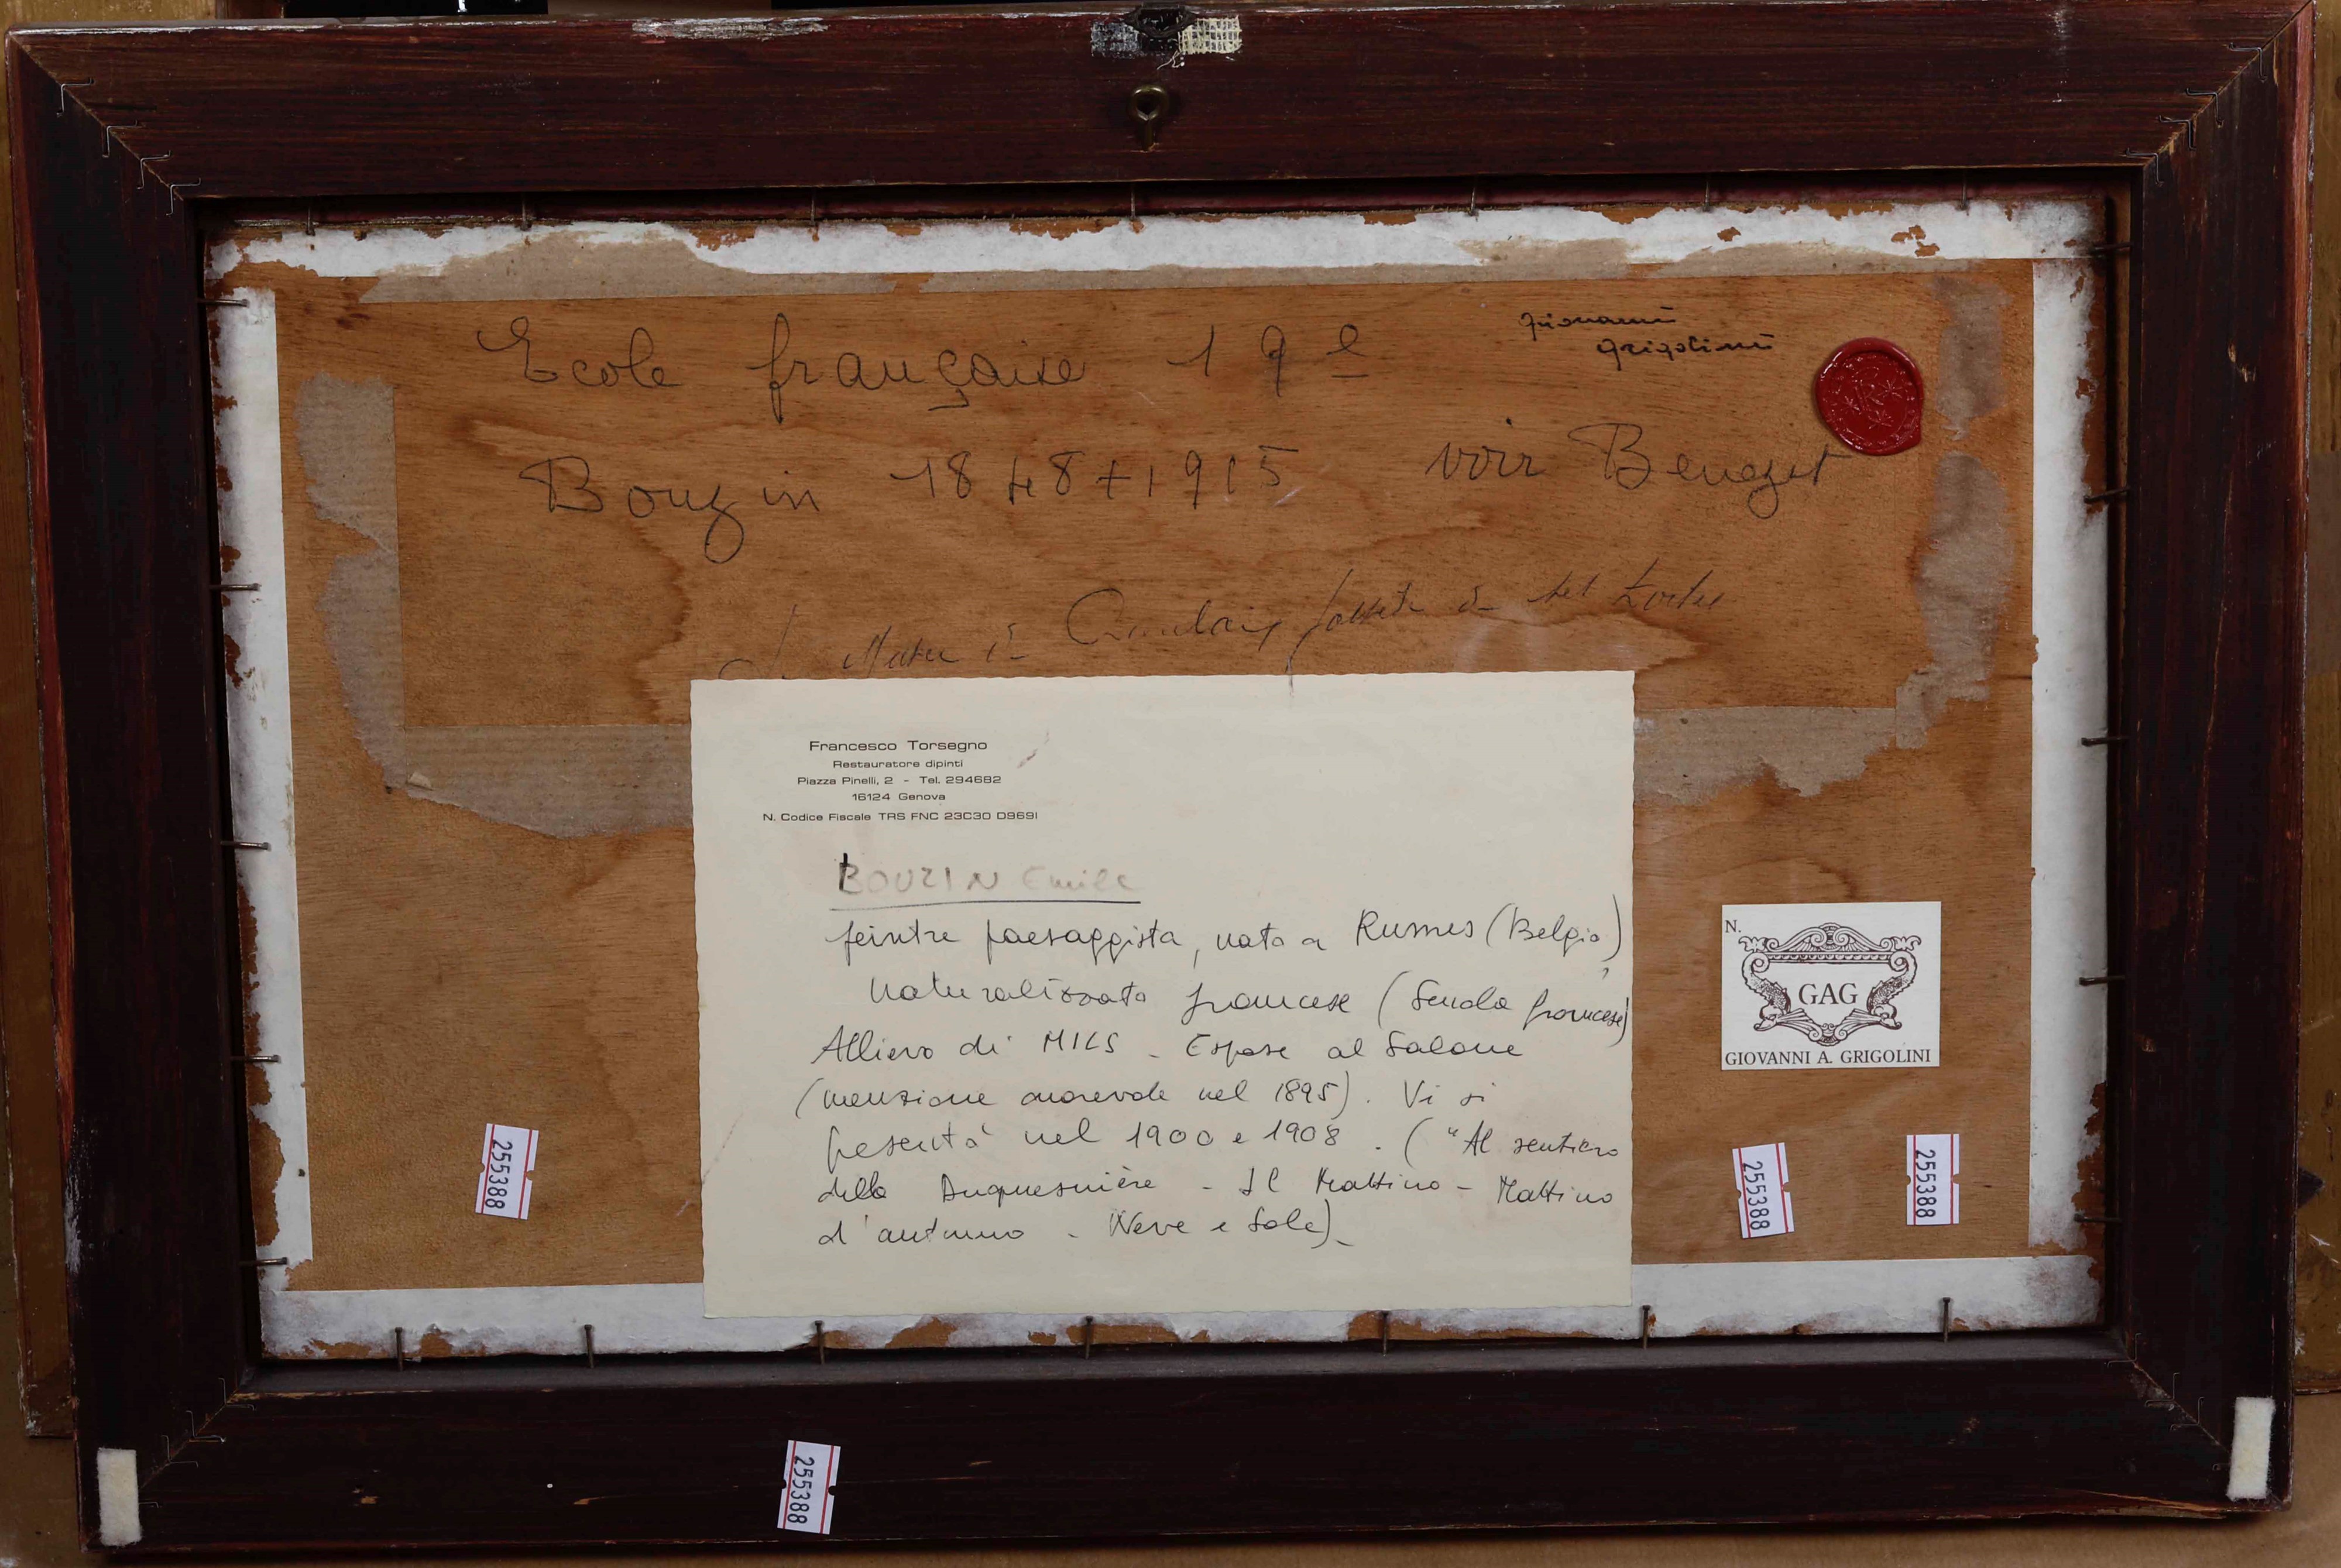 Ecole française 19e
Giovanni
Grigolini
Bouzin 1848+1915 voir Benezit
Francesco Torsegno
Restauratore dipinti
Piazza Pinelli, 2 - Tel. 294682
16124 Genova
N. Codice Fiscale TRS FNC 23C30 D969I
BOUZIN Emile
peintre paesaggista, nato a Rumes (Belgio)
naturalizzato francese (Scuola francese)
Allievo di MILS - Espose al Salone
(menzione onorevole nel 1895). Vi si
presentò nel 1900 e 1908. ("Al sentiero
della Duquesnière - Il Mattino - Mattino
d'autunno - Neve e Sole)-
N.
GAG
GIOVANNI A. GRIGOLINI
255388
255388
255388
255388